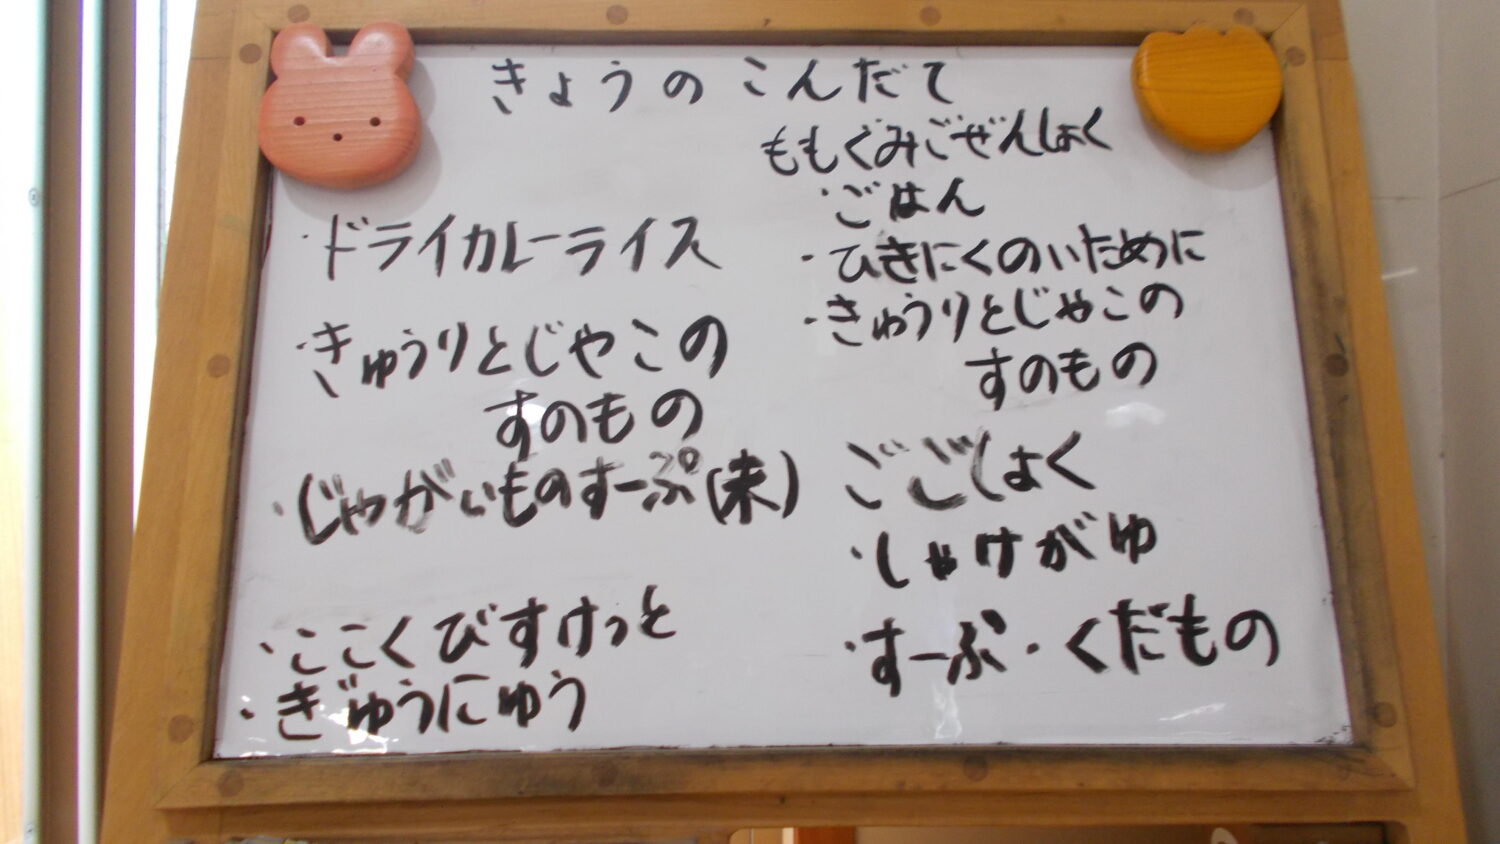 きょうのこんだて
・ドライカレーライス
・きゅうりとじゃこの
すのもの
・じゃがいものすーぷ(未)
・ここくびすけっと
・ぎゅうにゅう
ももぐみごぜんしょく
・ごはん
・ひきにくのいために
・きゅうりとじゃこの
すのもの
ごごしょく
・しゃけがゆ
・すーぷ・くだもの